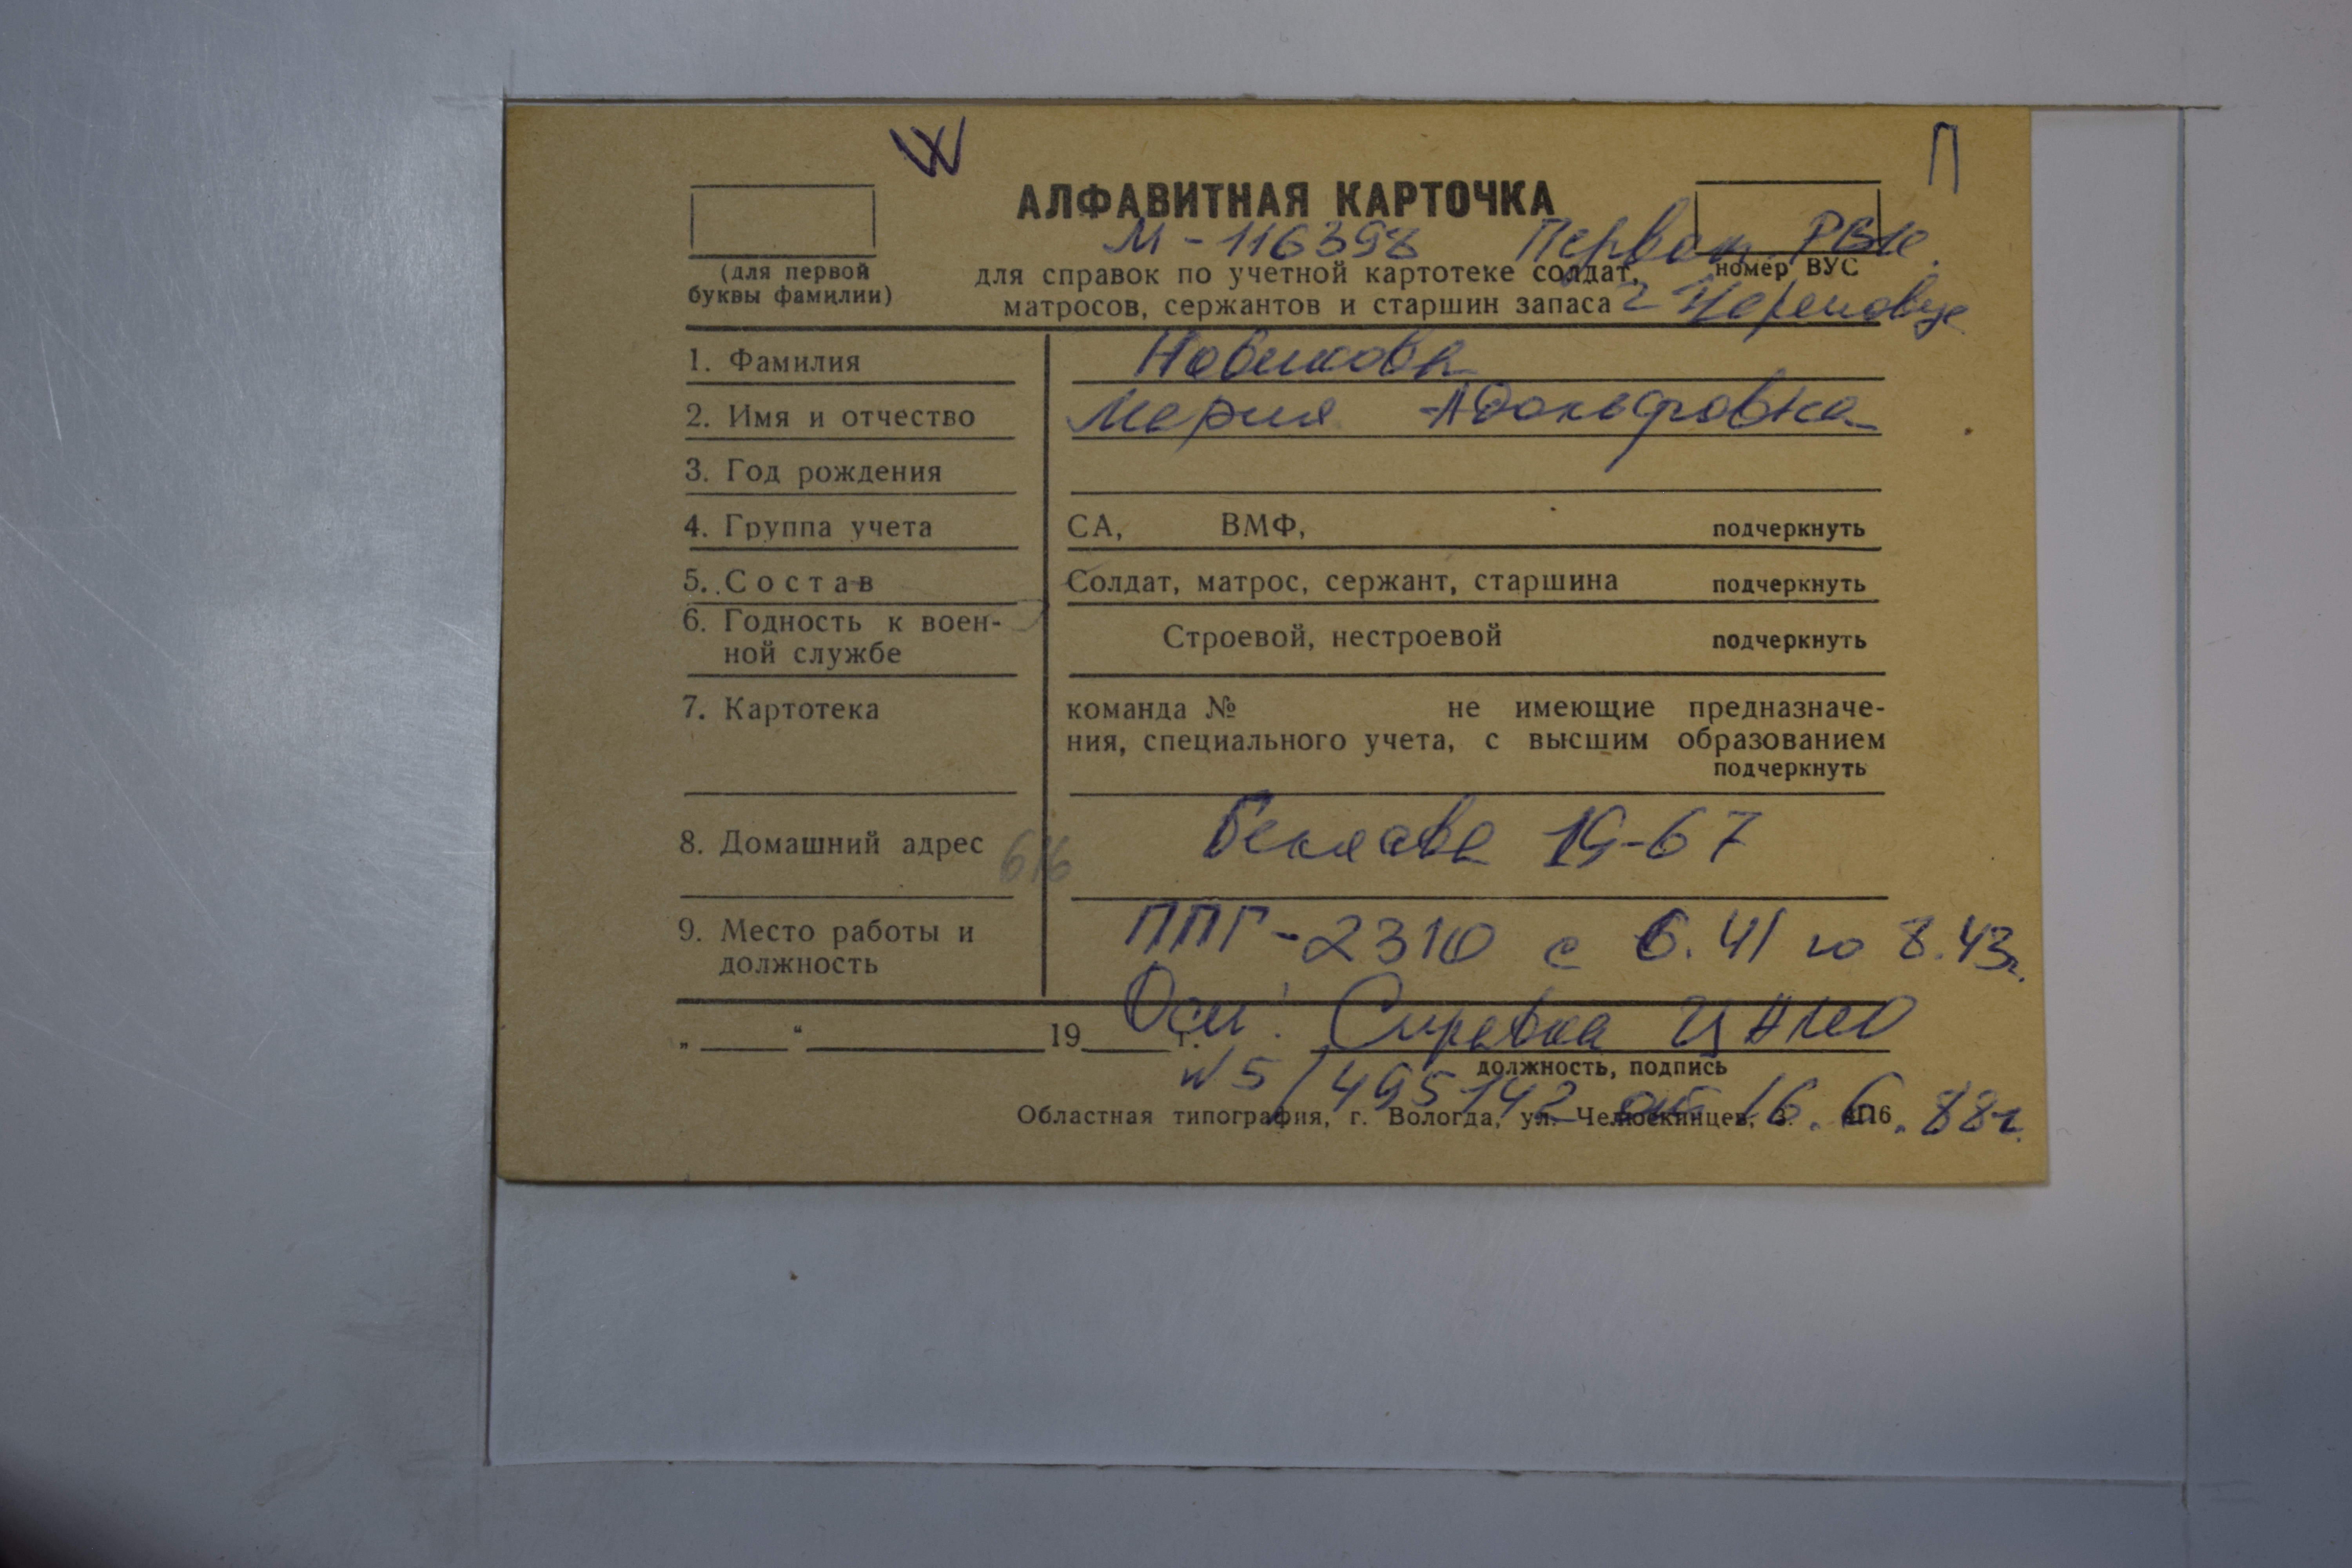 W
П
АЛФАВИТНАЯ КАРТОЧКА
М - 116398 Первон РВК.
(для первой
буквы фамилии)
для справок по учетной картотеке солдат,
матросов, сержантов и старшин запаса
номер ВУС
г Череповце
1. Фамилия Новикова
2. Имя и отчество Мария Адольфовна
3. Год рождения
4. Группа учета СА, ВМФ, подчеркнуть
5. Состав Солдат, матрос, сержант, старшина подчеркнуть
6. Годность к воен-
ной службе Строевой, нестроевой подчеркнуть
7. Картотека команда № не имеющие предназначе-
ния, специального учета, с высшим образованием
подчеркнуть
8. Домашний адрес Беляева 19-67
616
9. Место работы и
должность
ППГ-2310 с 6.41 по 8.43г.
Осн: Справка ЦАМО
„ “ 19 г.
должность, подпись
№ 5/495142 от 16.6.88г.
Областная типография, г. Вологда, ул. Челюскинцев, 3.